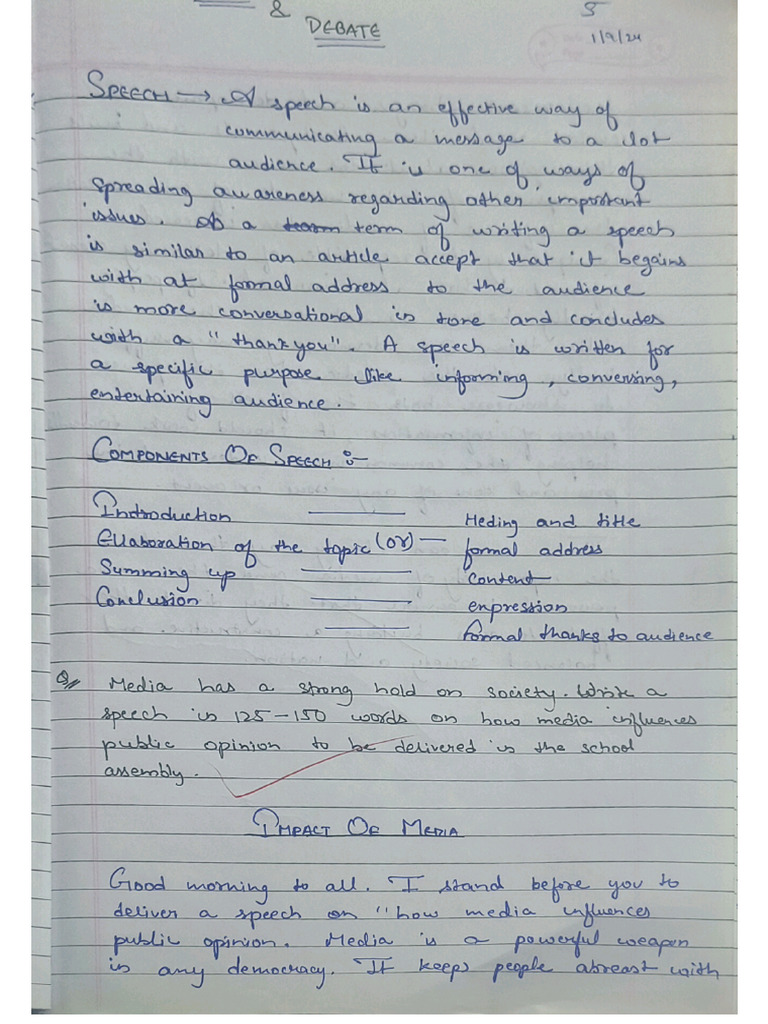 &
DEBATE
5
1/9/24
SPEECH → A speech is an effective way of
communicating a message to a lot
audience. It is one of ways of
spreading awareness regarding other important
issues. As a term of writing a speech
is similar to an article accept that it begains
with at formal address to the audience
is more conversational in tone and concludes
with a "thank you". A speech is written for
a specific purpose like informing, conversing,
entertaining audience.
COMPONENTS OF SPEECH :-
Introduction — Heding and title
Ellaboration of the topic (or) — formal address
Summing up — content
Conclusion — expression
— formal thanks to audience
Q// Media has a strong hold on society. Write a
speech in 125-150 words on how media influences
public opinion to be delivered in the school
assembly.
IMPACT OF MEDIA
Good morning to all. I stand before you to
deliver a speech on "how media influences
public opinion. Media is a powerful weapon
in any democracy. It keeps people abreast with